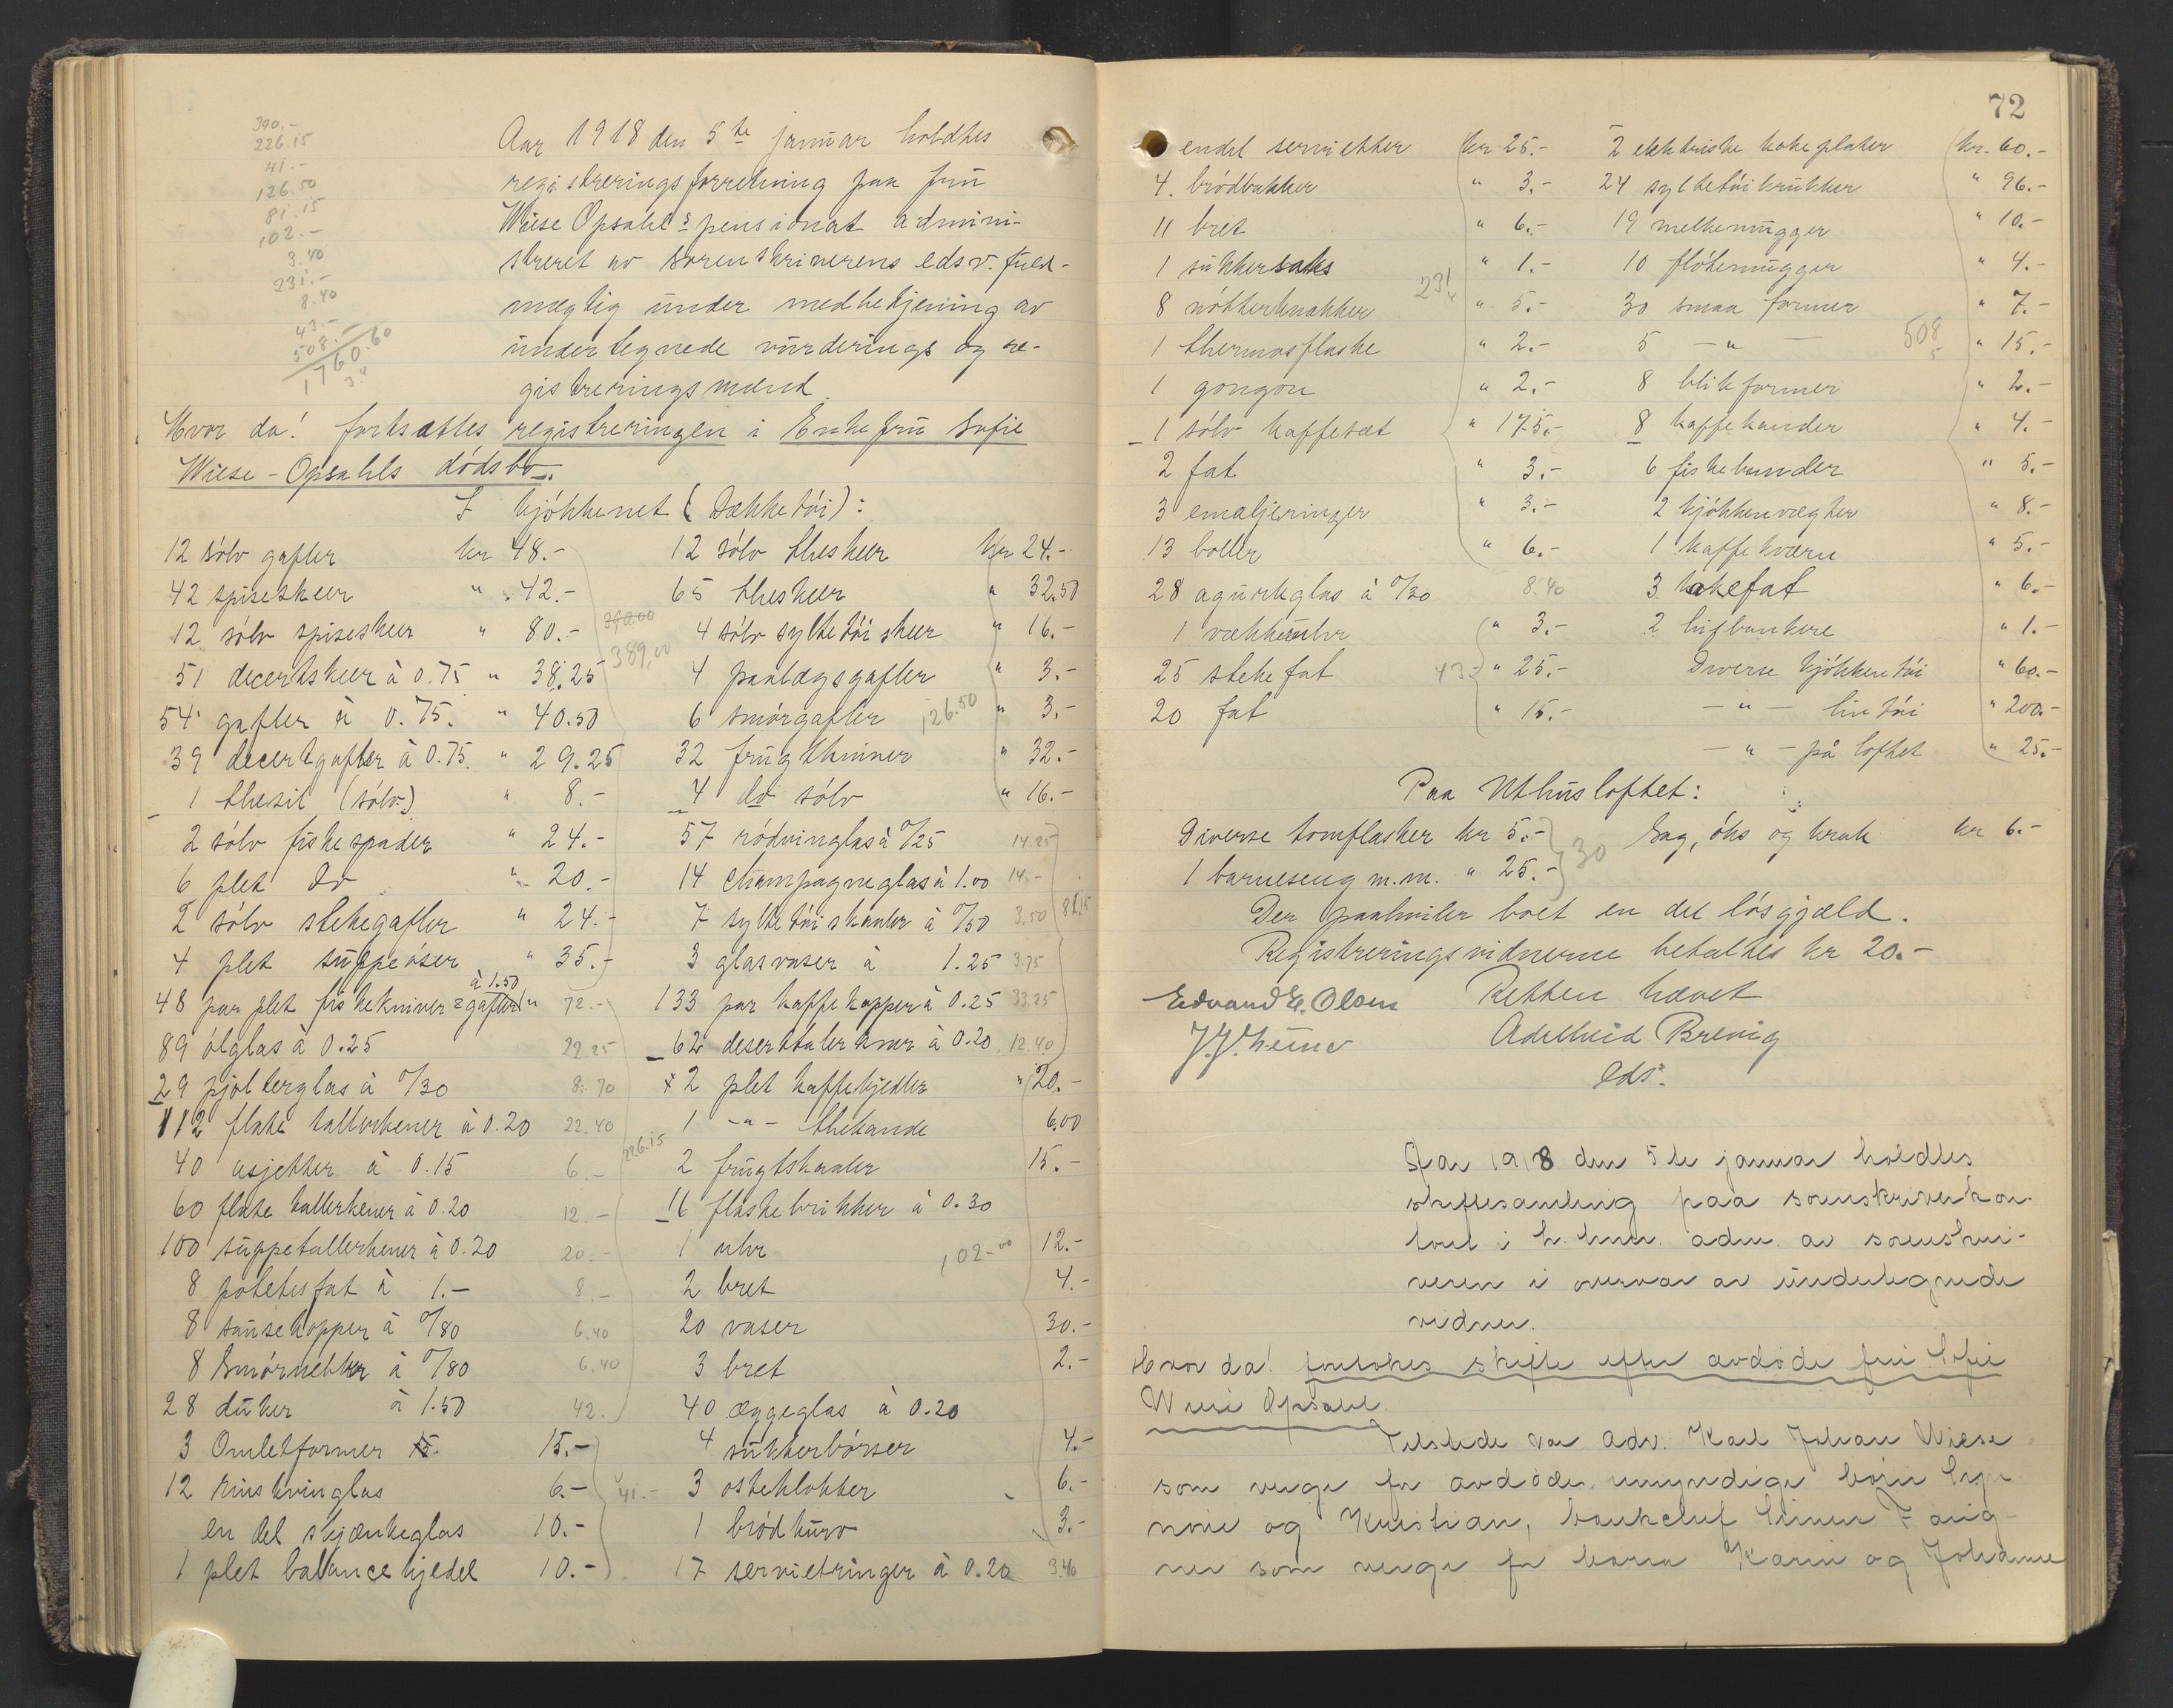 390.-
226.15
41.-
126.50
81.15
102.-
3.40
231.-
8.40
43.-
508.-
1760.60
Aar 1918 den 5te januar holdtes
registreringsforretning paa fru
Wiese Opsahls pensionat admini-
streret av sorenskriverens edsv. fuld-
mægtig under medbetjening av
undertegnede vurderings og re-
gistreringsmænd.
Hvor da! fortsattes registreringen i Enkefru Sofie
Wiese-Opsahls dödsbo.
I kjökkenet (Dækketöi):
12 sölv gafler kr 48.-
42 spiseskeer " 42.-
12 sölv spiseskeer " 80.-
390.00
389,00
51 decertskeer à 0.75 " 38.25
54 gafler à 0.75. " 40.50
39 decertgafler à 0.75. " 29.25
1 thesil (sölv) " 8.-
2 sölv fiskespader " 24.-
6 plet do " 20.-
2 sölv stekegafler " 24.-
4 plet suppeöser " 35.-
48 par plet fiskekniver = gafler à 1.50 " 72.-
89 ölglas à 0.25 22.25
29 pjolterglas à 0/30 8.70
112 flate tallerkener à 0.20 22.40
226.15
40 asjetter à 0.15 6.-
60 flate tallerkener à 0.20 12.-
100 suppetallerkener à 0.20 20.-
8 potetesfat à 1.- 8.-
8 sausekopper à 0/80 6.40
8 Smörnebber à 0/80 6.40
28 duker à 1.50 42.
3 Omletformer 15.-
12 Rinskvinglas 6.-
41.-
en del skjænkeglas 10.-
1 plet balancekjedel 10.-
12 sölv theskeer kr 24.-
65 theskeer " 32.50
4 sölv syltetöiskeer " 16.-
4 paalægsgafler " 3.-
6 smörgafler " 3.-
126.50
32 frugtkniver " 32.-
4 do sölv " 16.-
57 rödvinglas à 0/25 14.25
14 champagneglas à 1.00 14.-
7 syltetöiskaaler à 0/50 3.50
81.15
3 glasvaser à 1.25 3.75
133 par kaffekopper à 0.25 33.25
62 deserttalerkner à 0.20 12.40
x 2 plet kaffekjedler " 20.-
1 -"- thekande 6.00
2 frugtskaaler 15.-
16 flaskebrikker à 0.30
1 uhr 12.-
102.-00
2 bret 4.-
20 vaser 30.-
3 bret 2.-
40 æggeglas à 0.20
4 sukkerbörser 4.-
3 osteklokker 6.-
1 brödkurv 3.-
17 servietringer à 0.20 3.40
72
endel servietter kr 25.-
4. brödbakker " 3.-
11 bret " 6.-
1 sukkersaks " 1.-
231
8 nötteknakker " 5.-
1 thermosflaske " 2.-
1 gongon " 2.-
1 sölv kaffesæt " 175.-
2 fat " 3.-
3 emaljeringer " 3.-
13 boller " 6.-
28 agurkglas à 0/30 8.40
1 vækkeruhr " 3.-
25 stekefat " 25.-
43
20 fat " 15.-
2 elektriske kokeplater kr. 60.-
24 syltetöikrukker " 96.-
19 melkemugger " 10.-
10 flötemugger " 4.-
30 smaa former " 7.-
508
5 -"- " 15.-
8 blikformer " 2.-
8 kaffekander " 4.-
6 fiskebunder " 5.-
2 kjökkenvegter " 8.-
1 kaffekværn " 5.-
3 kakefat " 6.-
2 bifbankere " 1.-
Diverse kjökkentöi " 60.-
-"- lintöi " 200.-
-"- på loftet " 25.-
Paa Uthusloftet:
Diverse tomflasker kr 5.-
1 barneseng m.m. " 25.-
30
Sag, öks og krak kr 6.-
Der paahviler boet en del lösgjæld.
Registreringsvidnerne betaltes kr 20.-
Retten hævet
Edvard E. Olsen
Adelheid Brevig
eds.
Aar 1918 den 5te januar holdtes
skiftesamling paa sorenskriverkon-
toret i L.hmr. adm. av sorenskri-
veren i overvær av undertegnede
vidner.
Hvor da! foretokes skifte efter avdöde fru Sofie
Wiese Opsahl.
Tilstede var adv. Karl Johan Wiese
som verge for avdödes umyndige börn
og Kristian, bankchef Einar
ner som verge for barna Karin og Johanne